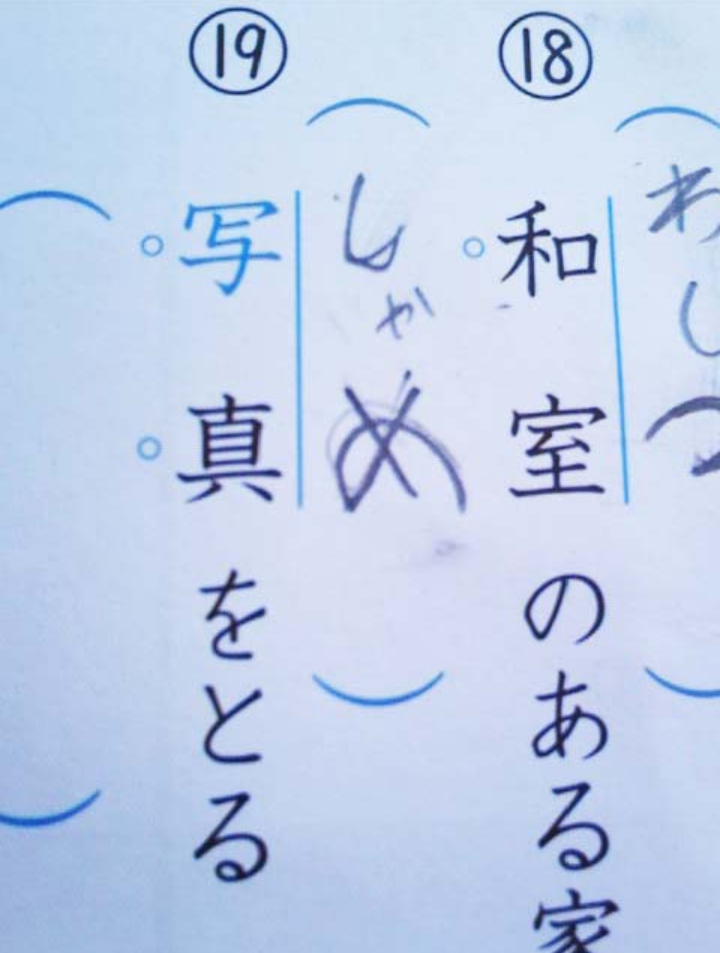 わしつ
⑱ 和室のある家
しゃめ
⑲ 写真をとる